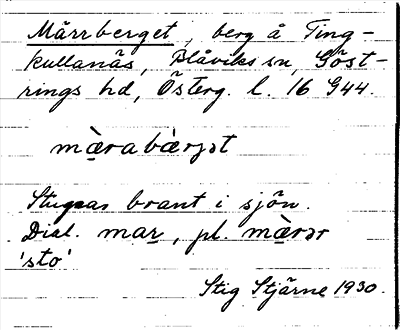 Märrberget, berg å Ting-
kullanäs, Blåviks sn, Göst-
rings hd, Österg. l. 16 G44.
mæ̀rabæ̀rjət
Stupar brant i sjön.
Dial. mar, pl. mæ̀rər
'sto'
Stig Stjärne 1930.